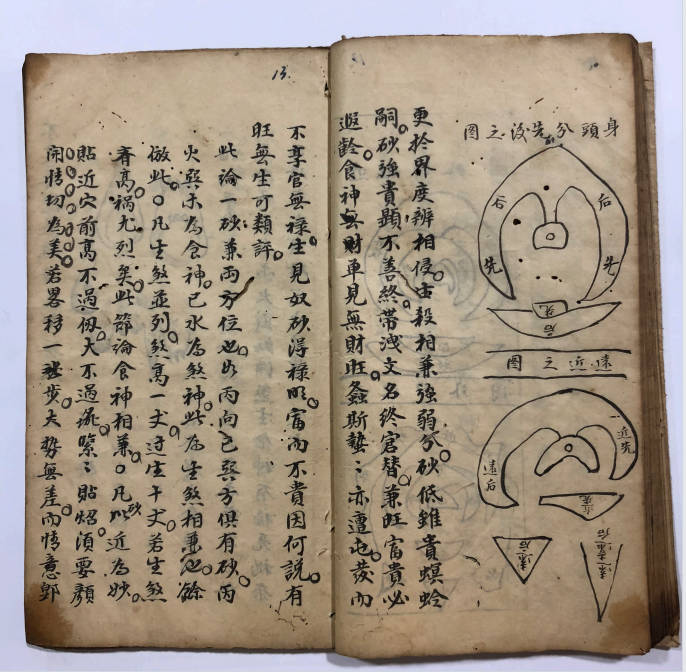 身頭分先後之图
后
后
先
先
后先
遠近之图
一近先
遠后
近先
遠后
遠遠后
更扵界度辨相侵。殺相兼強弱分。砂低雖貴螟蛉
嗣。砂強貴顯不善終。帶洩文名終窘替。兼旺富貴必
遐齡。食神無財單見無財旺。螽斯蟄〻亦遭屯而
13.
不享官無祿。生見奴砂淂祿明。富而不貴因何說。有
旺無生可類評。
此論一砂兼兩方位也。如丙向已巽方俱有砂。丙
火巽木為食神。已水為煞神。此為生煞相兼也。餘
倣此。凡生煞並列。煞高一丈。过生千丈。若生煞
脊高。禍尤烈矣。此節論食神相兼。凡砂以近為妙。
貼近穴前高不過仭。大不過畝。緊〻貼招須要
情切為美。若畧移一步。大勢無差。而情意